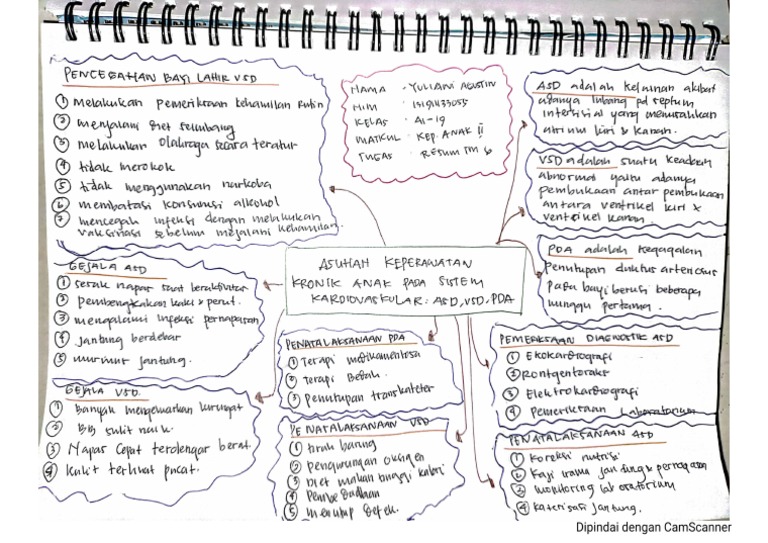 PENCEGAHAN BAYI LAHIR VSD
① Melakukan pemeriksaan kehamilan rutin
② menjalani Diet seimbang
③ melakukan Olahraga secara teratur
④ tidak merokok
⑤ tidak menggunakan narkoba
⑥ membatasi konsumsi alkohol
⑦ mencegah infeksi dengan melakukan
vaksinasi sebelum menjalani kehamilan.
NAMA - YULIANI AGUSTIN
NIM :
KELAS : A1-19
MATKUL : KEP. ANAK II
TUGAS : RESUM TM 6
ASD adalah kelainan akibat
adanya lubang pd septum
intersisial yang memisahkan
atrium kiri & kanan.
VSD adalah suatu keadaan
abnormal yaitu adanya
pembukaan antar pembukaan
antara ventrikel kiri &
ventrikel kanan.
PDA adalah kegagalan
penutupan duktus arteriosus
pada bayi berusi beberapa
minggu pertama.
ASUHAN KEPERAWATAN
KRONIK ANAK PADA SISTEM
KARDIOVASKULAR : ASD, VSD, PDA
GEJALA ASD
① sesak napas saat beraktivitas
② pembengkakan kaki & perut.
③ mengalami infeksi pernapasan
④ jantung berdebar
⑤ murmur jantung.
GEJALA VSD
① Banyak mengeluarkan keringat
② BB sulit naik.
③ Napas cepat terdengar berat.
④ kulit terlihat pucat.
PENATALAKSANAAN PDA
① Terapi medikamentosa
② Terapi Bedah.
③ penutupan transkateter
PENATALAKSANAAN VSD
① tirah baring
② pengurungan oksigen
③ Diet makan tinggi kalori
④ Pembedahan
⑤ menutup Defek.
PEMERIKSAAN DIAGNOSTIK ASD
① Ekokardiografi
② Rontgentoraks
③ Elektrokardiografi
④ Pemeriksaan Laboratorium
PENATALAKSANAAN ASD
① Koreksi nutrisi
② Kaji irama jantung & pernapasan
③ monitoring laboratorium
④ Katerisasi jantung.
Dipindai dengan CamScanner